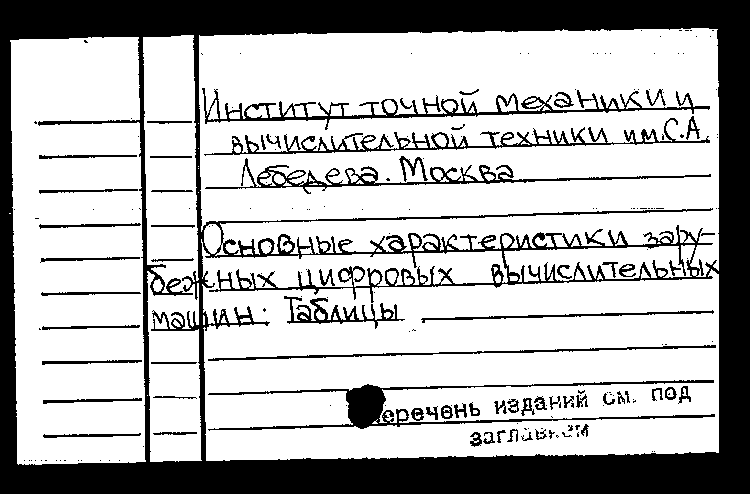 Институт точной механики и
вычислительной техники им.С.А.
Лебедева. Москва
Основные характеристики зару-
бежных цифровых вычислительных
машин: Таблицы
Перечень изданий см. под
заглавием